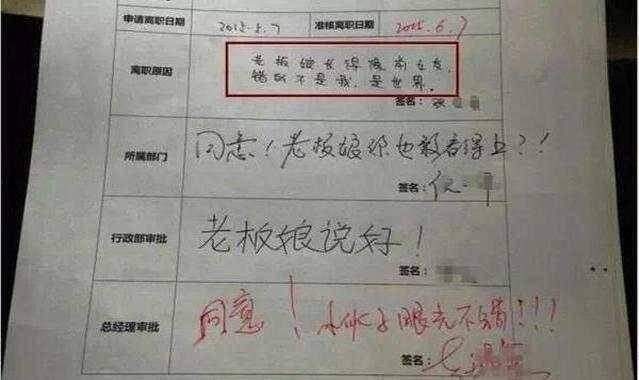 申请离职日期 2015.5.7 准核离职日期 2015.6.7
老板娘长得像前女友,
离职原因 错的不是我,是世界。
签名:
所属部门 同意!老板娘你也敢看得上?!
签名:
行政部审批 老板娘说好!
签名:
总经理审批 同意!小伙子眼光不错!!!
签名: